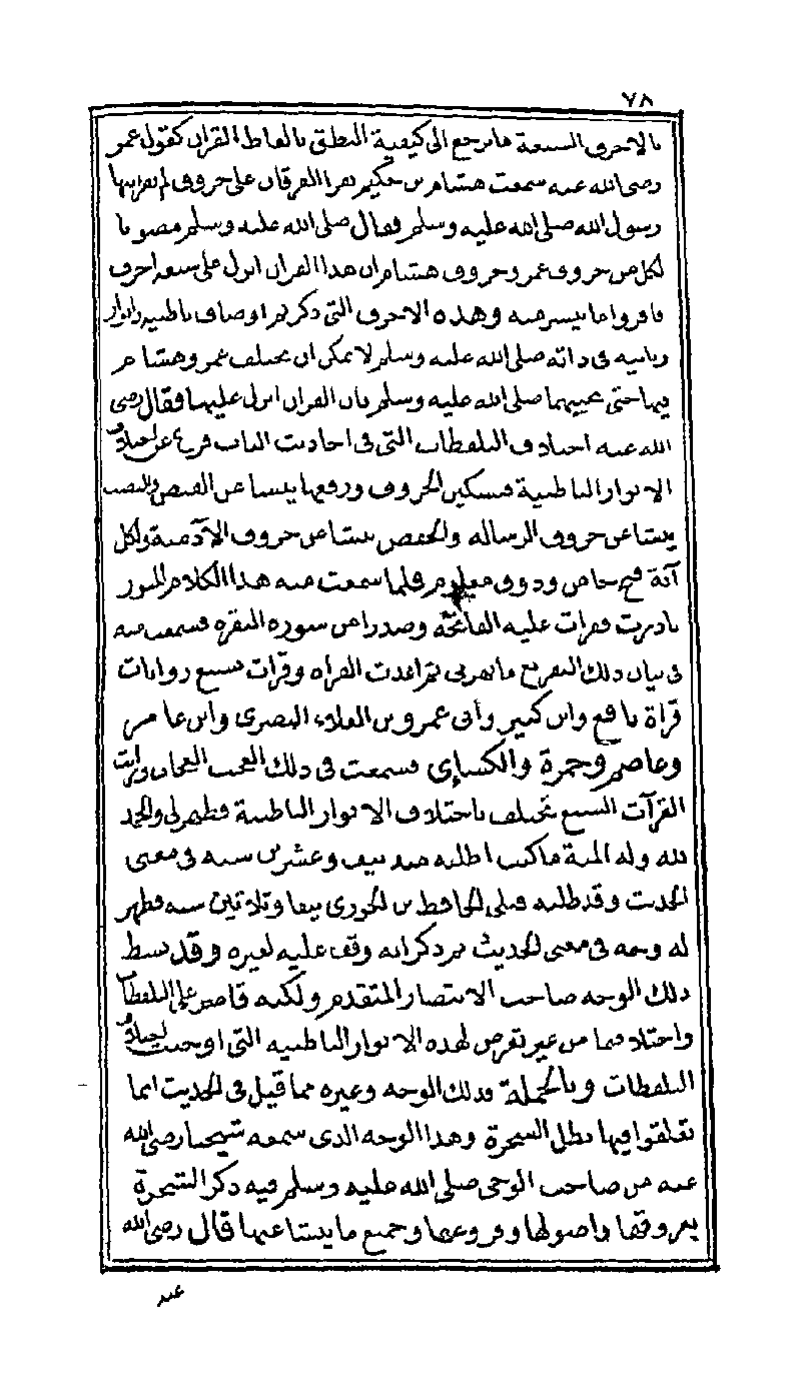 ٧٨
بالاحرف السبعة ما يرجع الى كيفية النطق بالفاظ القران كقول عمر
رضى الله عنه سمعت هشام بن حكيم يقرا الفرقان على حروف لم يقرئنيها
رسول الله صلى الله عليه وسلم فقال صلى الله عليه وسلم مصوبا
لكل من حروف عمر وحروف هشام ان هذا القران انزل على سبعة احرف
فاقروا ما تيسر منه وهذه الاحرف التى ذكرتم اوصاف باطنية وانوار
ربانية فى ذاته صلى الله عليه وسلم لا يمكن ان يختلف عمر وهشام
فيها حتى يجيبهما صلى الله عليه وسلم بان القران انزل عليها فقال رضى
الله عنه اختلاف التلفظات التى فى احاديث الباب فرع عن اختلاف
الانوار الباطنية فتسكين الحروف ورفعها ينشا عن القبض والنصب
ينشا عن حروف الرسالة والخفض ينشا عن حروف الآدمية ولكل
آية فتح خاص وذوق معلوم فلما سمعت منه هذا الكلام المنور
بادرت فقرات عليه الفاتحة وصدرا من سورة البقرة فسمعت منه
فى بيان ذلك التفريع ما بهرنى ثم اعدت القراة وقرات بسبع روايات
قراة نافع وابن كثير وأبى عمرو بن العلاء البصرى وابن عامر
وعاصم وحمزة والكسائى فسمعت فى ذلك العجب العجاب ورايت
القرآت السبع تختلف باختلاف الانوار الباطنية فظهر لى والحمد
لله وله المنة ما كنت اطلبه منذ نيف وعشرين سنة فى معنى
الحديث وقد طلبه قبلى الحافظ بن الجزرى نيفا وثلاثين سنة فظهر
له وجه فى معنى الحديث ثم ذكر انه وقف عليه لغيره وقد بسط
ذلك الوجه صاحب الانتصار المتقدم ولكنه قاصر على التلفظات
واختلافها من غير تعرض لهذه الانوار الباطنية التى اوجبت اختلاف
التلفظات وبالجملة فذلك الوجه وغيره مما قيل فى الحديث انما
تعلقوا فيها بظل الشجرة وهذا الوجه الذى سمعه شيخنا رضى الله
عنه من صاحب الوحى صلى الله عليه وسلم فيه ذكر الشجرة
بعروقها واصولها وفروعها وجميع ما ينشا عنها قال رضى الله
عنه